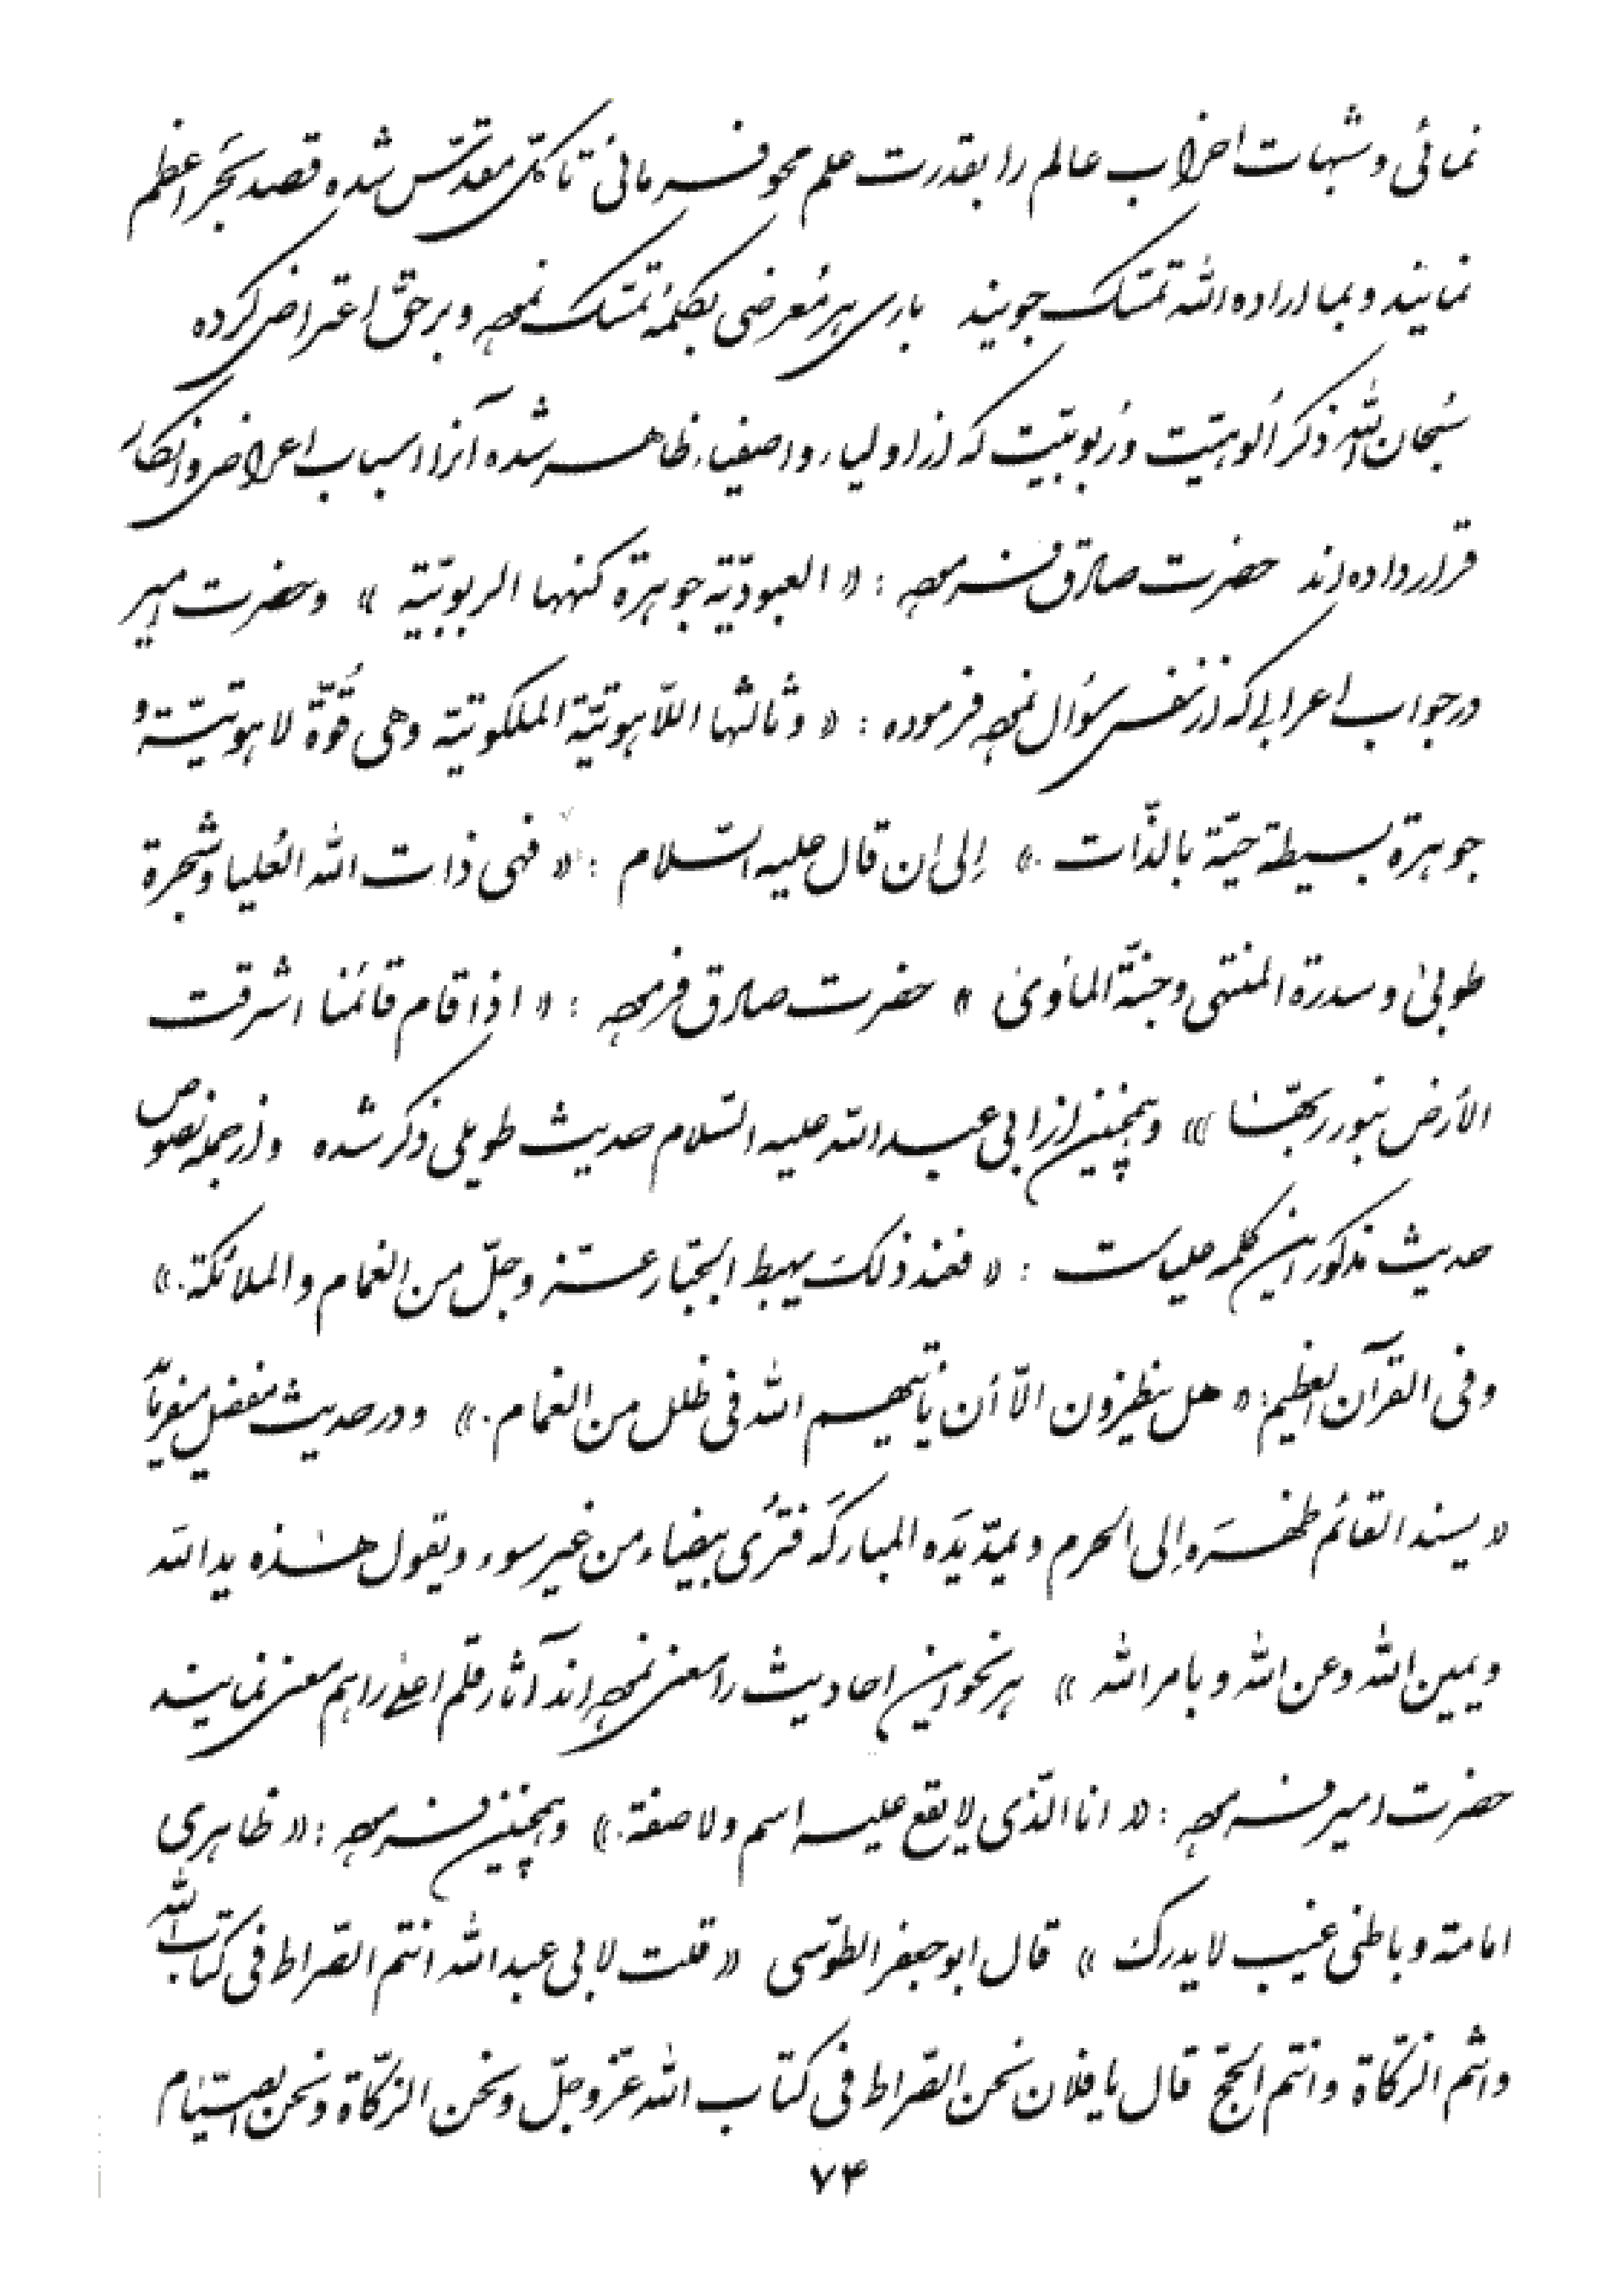 نمائی و شبهات احزاب عالم را بقدرت علم محو فرمائی تا کلّ مقدّس شده قصد بَحر اعظم
نمایند و بما اراده الله تمسّک جویند باری هر مُعرضی بکلمهٴ تمسّک نموده و بر حقّ اعتراض کرده
سُبحان الله ذکر اُلوهیّت و رُبوبیّت که از اولیاء و اصفیاء ظاهر شده آنرا اسباب اعراض و انکار
قرار داده اند حضرت صادق فرموده : « العبودیّة جوهرة کنهها الربوبّیة » و حضرت امیر
در جواب اعرابی که از نفس سؤال نموده فرموده : « و ثالثها اللّاهوتیّة الملکوتیّة وهی قُوّة لاهوتیّةٌ و
جوهرة بسیطة حیّة بالذّات .» إلی ان قال علیه السّلام : « فهی ذات الله العُلیا و شجرة
طوبیٰ و سدرة المنتهی و جنّة المأویٰ » حضرت صادق فرموده : « اذا قام قائمنا اشرقت
الأرض بنور ربّها » و همچنین از ابی عبد الله علیه السّلام حدیث طویلی ذکر شده و از جمله نصوص
حدیث مذکور این کلمه علیاست : « فعند ذلک یهبط الجبّار عزّ و جلّ من الغمام و الملائکة.»
و فی القرآن العظیم: « هل ینظرون الّا أن یأتیهم الله فی ظلل من الغمام .» و در حدیث مفضل میفرماید
« یسند القائم ظهرَه إلی الحرم و یمدّ یَده المبارکَه فتُری بیضاء من غیر سوء و یقول هٰذه ید الله
و یمین الله و عن الله و بامر الله » هر نحو این احادیث را معنی نموده اند آثار قلم اعلی را هم معنی نمایند
حضرت امیر فرموده : « انا الّذی لا یقع علیه اسم و لا صفة.» و همچنین فرموده : « ظاهری
امامة و باطنی غیب لا یدرک » قال ابو جعفر الطوّسی « قلت لابی عبد الله انتم الصّراط فی کتاب الله
و انتم الزّکاة و انتم الحجّ قال یا فلان نحن الصّراط فی کتاب الله عزّ و جلّ و نحن الزّکاة و نحن الصّیام
۷۴